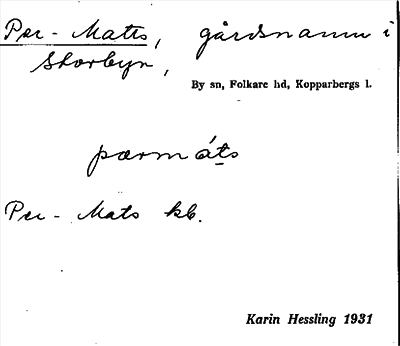 Per - Mats, gårdsnamn i
Skorbyn,
By sn, Folkare hd, Kopparbergs l.
pærmáts
Per - Mats kb.
Karin Hessling 1931